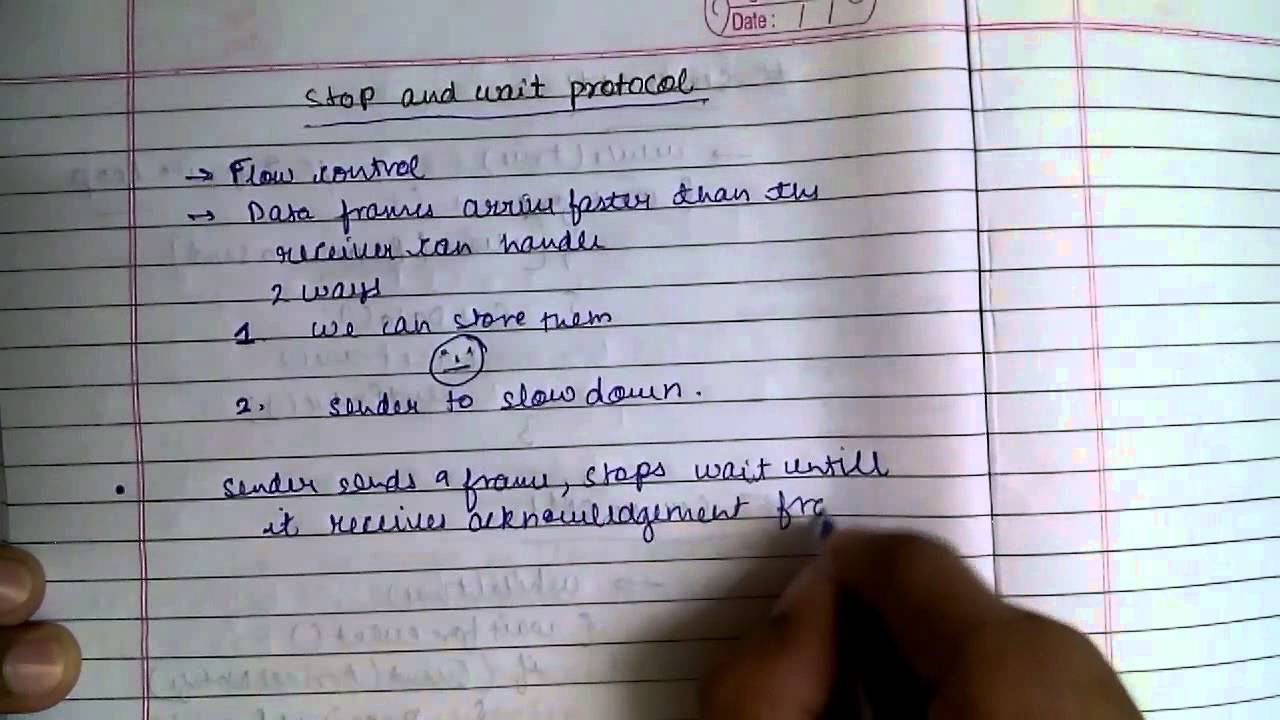 Date: / /
Stop and wait protocol
→ Flow control
→ Data frames arrive faster than the
receiver can handle
2 ways
1 we can store them
2. sender to slow down.
• sender sends a frame, stops wait untill
it receives acknowledgement fro